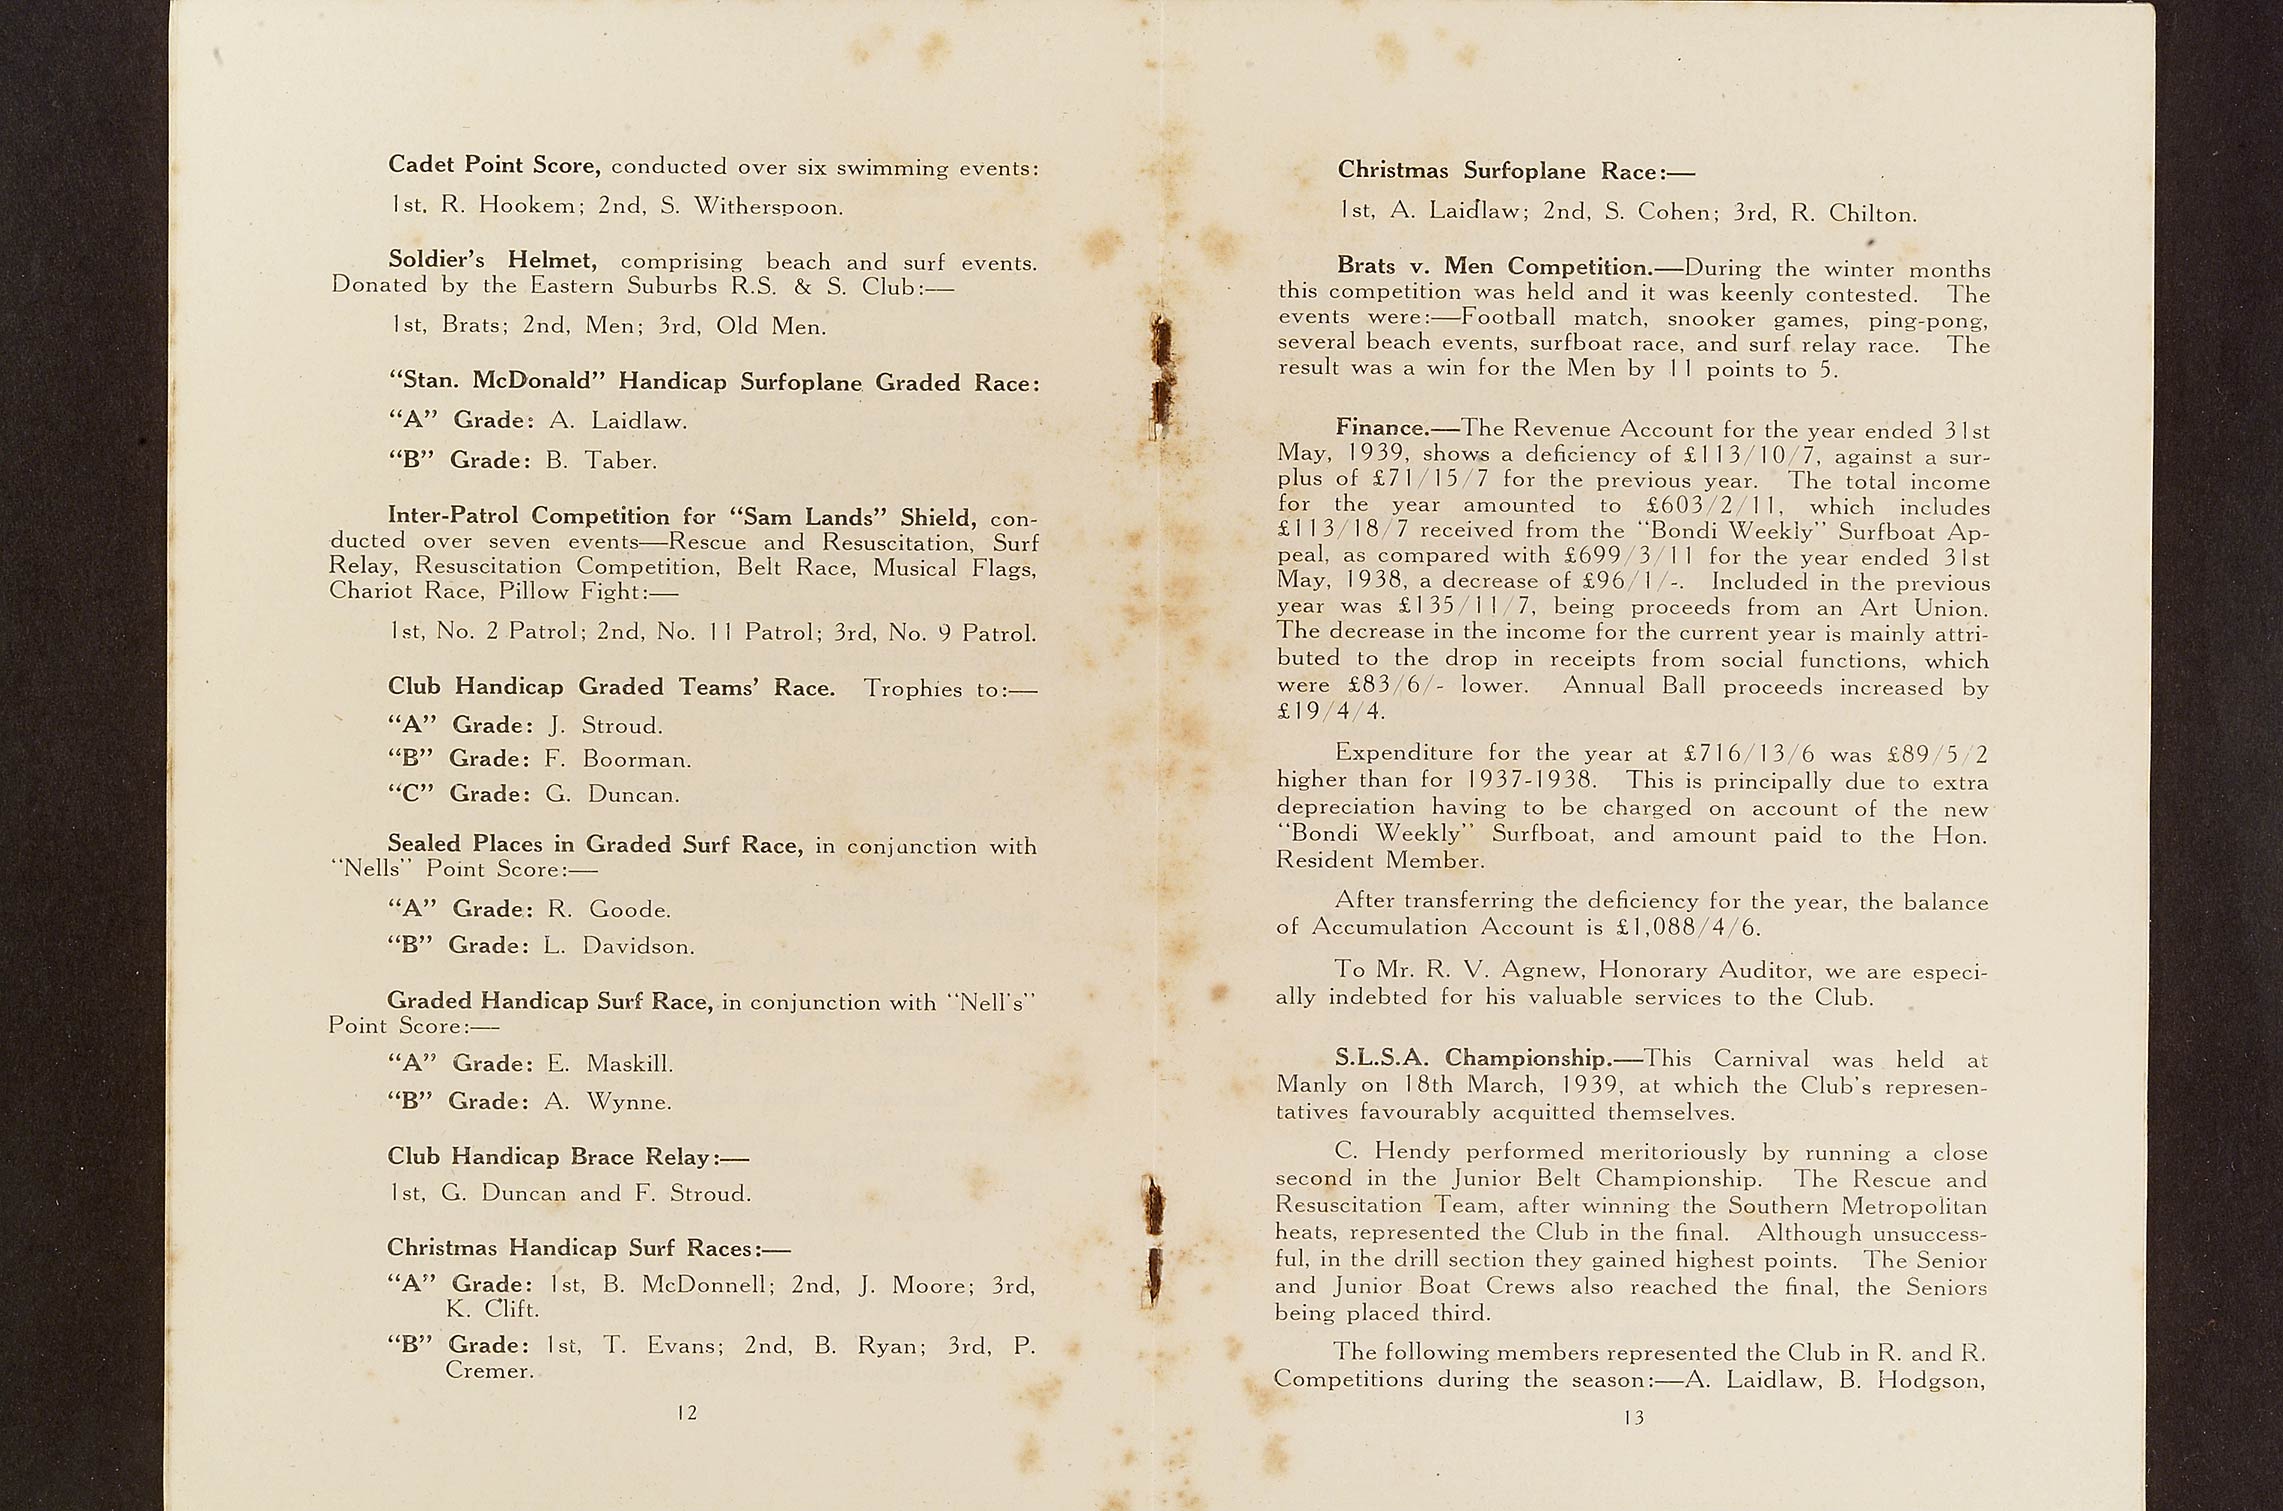 Cadet Point Score, conducted over six swimming events:
1st, R. Hookem; 2nd, S. Witherspoon.
Soldier's Helmet, comprising beach and surf events.
Donated by the Eastern Suburbs R.S. & S. Club:—
1st, Brats; 2nd, Men; 3rd, Old Men.
"Stan. McDonald" Handicap Surfoplane Graded Race:
"A" Grade: A. Laidlaw.
"B" Grade: B. Taber.
Inter-Patrol Competition for "Sam Lands" Shield, con-
ducted over seven events—Rescue and Resuscitation, Surf
Relay, Resuscitation Competition, Belt Race, Musical Flags,
Chariot Race, Pillow Fight:—
1st, No. 2 Patrol; 2nd, No. 11 Patrol; 3rd, No. 9 Patrol.
Club Handicap Graded Teams' Race. Trophies to:—
"A" Grade: J. Stroud.
"B" Grade: F. Boorman.
"C" Grade: G. Duncan.
Sealed Places in Graded Surf Race, in conjunction with
"Nells" Point Score:—
"A" Grade: R. Goode.
"B" Grade: L. Davidson.
Graded Handicap Surf Race, in conjunction with "Nell's"
Point Score:—
"A" Grade: E. Maskill.
"B" Grade: A. Wynne.
Club Handicap Brace Relay:—
1st, G. Duncan and F. Stroud.
Christmas Handicap Surf Races:—
"A" Grade: 1st, B. McDonnell; 2nd, J. Moore; 3rd,
K. Clift.
"B" Grade: 1st, T. Evans; 2nd, B. Ryan; 3rd, P.
Cremer.
12
Christmas Surfoplane Race:—
1st, A. Laidlaw; 2nd, S. Cohen; 3rd, R. Chilton.
Brats v. Men Competition.—During the winter months
this competition was held and it was keenly contested. The
events were:—Football match, snooker games, ping-pong,
several beach events, surfboat race, and surf relay race. The
result was a win for the Men by 11 points to 5.
Finance.—The Revenue Account for the year ended 31st
May, 1939, shows a deficiency of £113/10/7, against a sur-
plus of £71/15/7 for the previous year. The total income
for the year amounted to £603/2/11, which includes
£113/18/7 received from the "Bondi Weekly" Surfboat Ap-
peal, as compared with £699/3/11 for the year ended 31st
May, 1938, a decrease of £96/1/-. Included in the previous
year was £135/11/7, being proceeds from an Art Union.
The decrease in the income for the current year is mainly attri-
buted to the drop in receipts from social functions, which
were £83/6/- lower. Annual Ball proceeds increased by
£19/4/4.
Expenditure for the year at £716/13/6 was £89/5/2
higher than for 1937-1938. This is principally due to extra
depreciation having to be charged on account of the new
"Bondi Weekly" Surfboat, and amount paid to the Hon.
Resident Member.
After transferring the deficiency for the year, the balance
of Accumulation Account is £1,088/4/6.
To Mr. R. V. Agnew, Honorary Auditor, we are especi-
ally indebted for his valuable services to the Club.
S.L.S.A. Championship.—This Carnival was held at
Manly on 18th March, 1939, at which the Club's represen-
tatives favourably acquitted themselves.
C. Hendy performed meritoriously by running a close
second in the Junior Belt Championship. The Rescue and
Resuscitation Team, after winning the Southern Metropolitan
heats, represented the Club in the final. Although unsuccess-
ful, in the drill section they gained highest points. The Senior
and Junior Boat Crews also reached the final, the Seniors
being placed third.
The following members represented the Club in R. and R.
Competitions during the season:—A. Laidlaw, B. Hodgson,
13